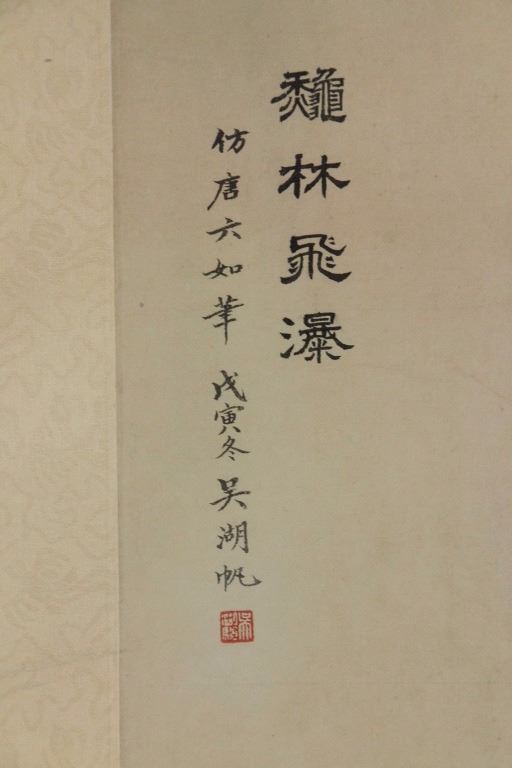 龝林飛瀑
仿唐六如筆 戊寅冬吴湖帆